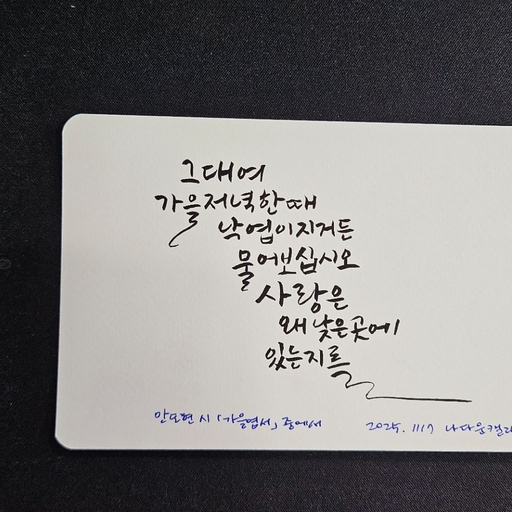 그대여
가을저녁한때
낙엽이지거든
물어보십시오
사랑은
왜낮은곳에
있는지를
안도현 시 「가을엽서」 중에서
2025. 1117 나다움캘리